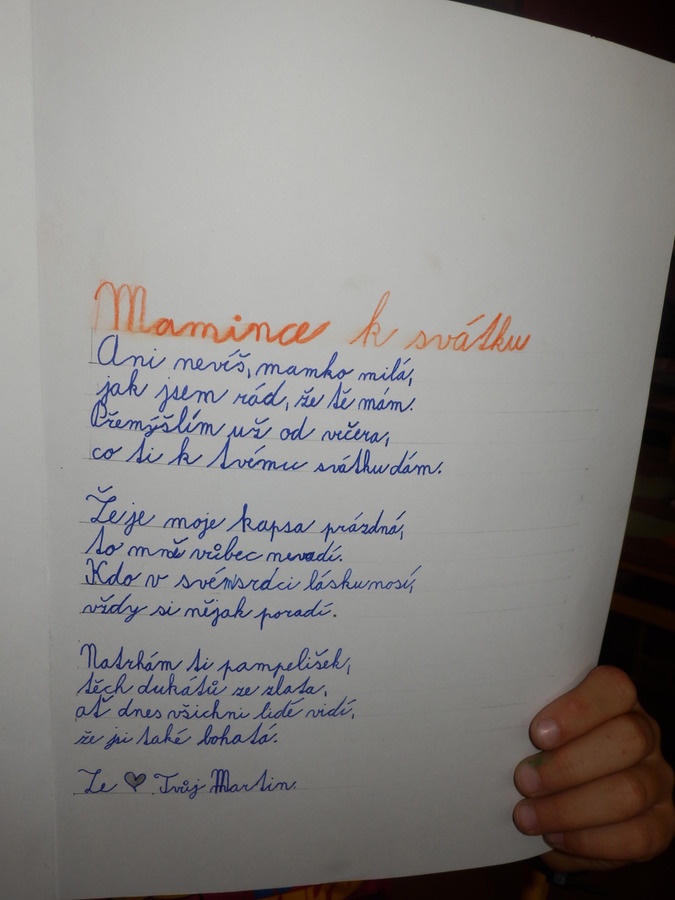 Mamince k svátku
Ani nevíš, mamko milá,
jak jsem rád, že tě mám.
Přemýšlím už od včera,
co ti k tvému svátku dám.
Že je moje kapsa prázdná,
to mně vůbec nevadí.
Kdo v svém srdci lásku nosí,
vždy si nějak poradí.
Natrhám ti pampelišek,
těch dukátů ze zlata,
ať dnes všichni lidé vidí,
že jsi také bohatá.
Ze ♥ Tvůj Martin.